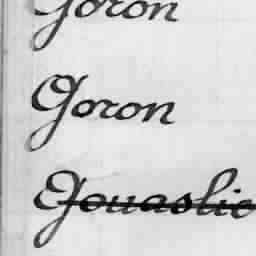 Goron
Goron
Gouaslic